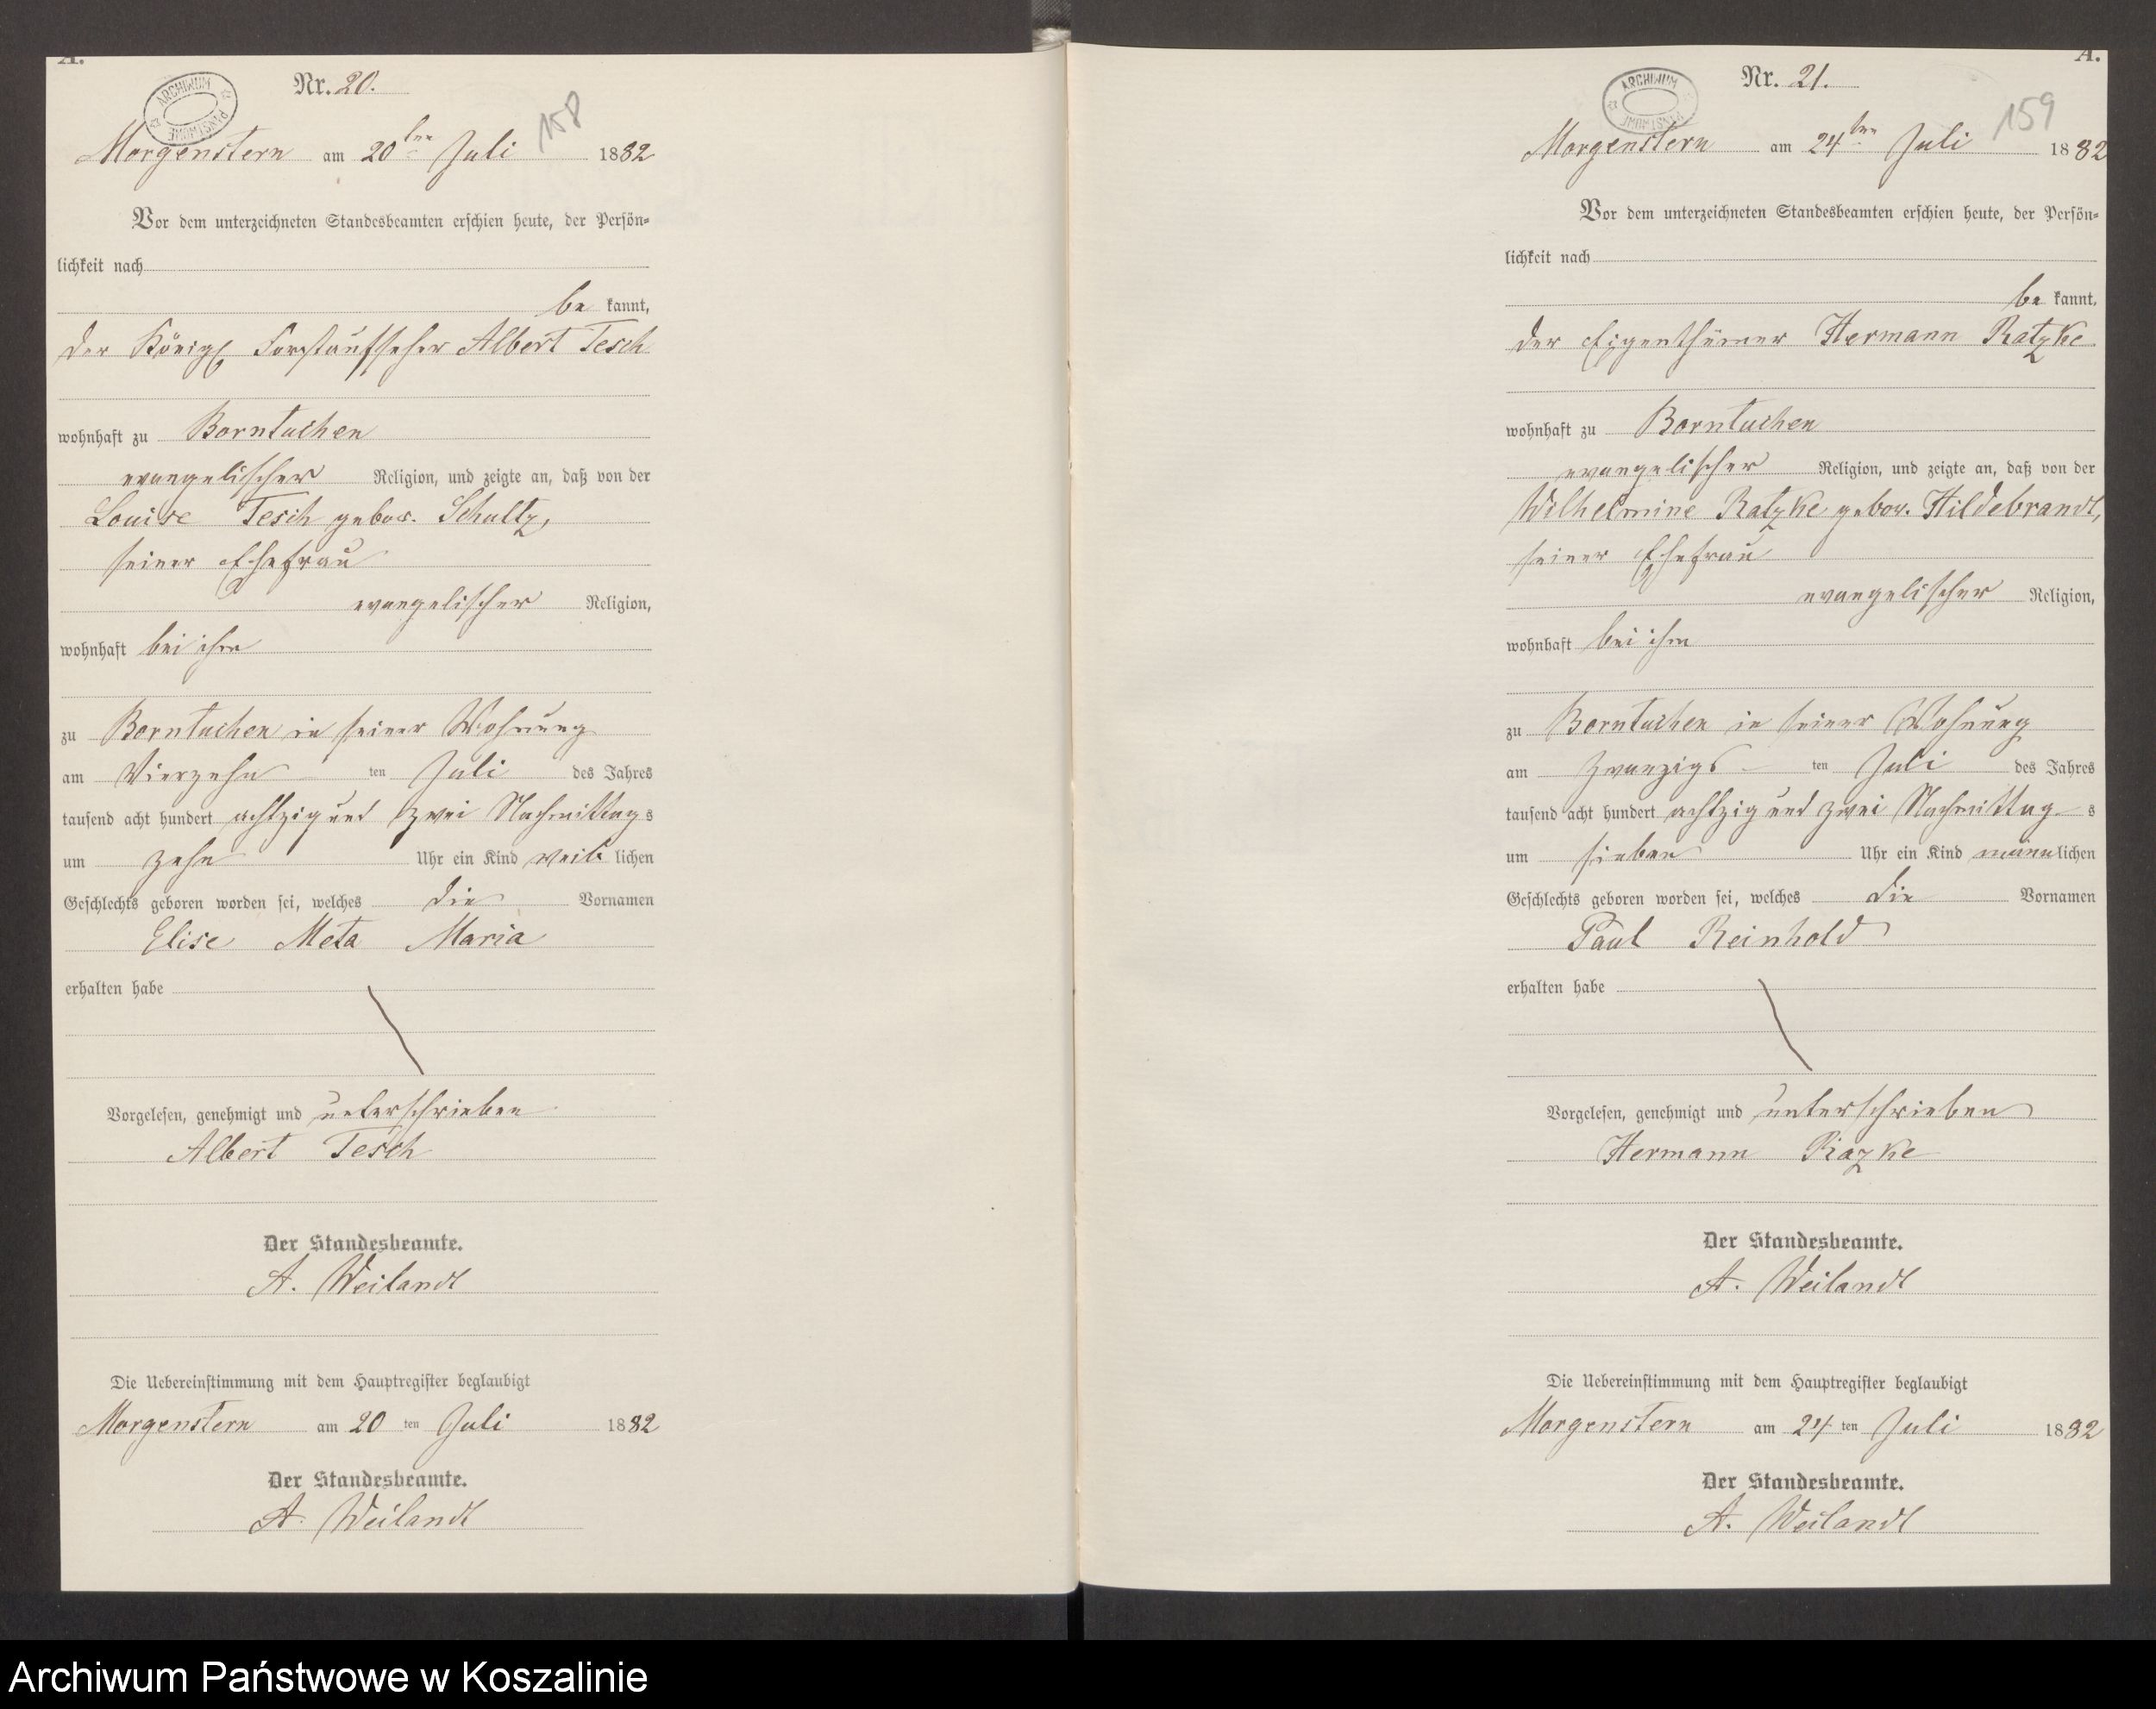 A.
Nr. 20.
ARCHIWUM PAŃSTWOWE
158
Morgenstern am 20ten Juli 1882
Vor dem unterzeichneten Standesbeamten erschien heute, der Persön-
lichkeit nach
be kannt,
der Königl Forstaufseher Albert Tesch
wohnhaft zu Borntuchen
evangelischer Religion, und zeigte an, daß von der
Louise Tesch gebor. Schultz,
seiner Ehefrau
evangelischer Religion,
wohnhaft bei ihm
zu Borntuchen in seiner Wohnung
am Vierzehn ten Juli des Jahres
tausend acht hundert achtzig und zwei Nachmittag s
um zehn Uhr ein Kind weib lichen
Geschlechts geboren worden sei, welches die Vornamen
Elise Meta Maria
erhalten habe
Vorgelesen, genehmigt und unterschrieben
Albert Tesch
Der Standesbeamte.
A. Weilandt
Die Uebereinstimmung mit dem Hauptregister beglaubigt
Morgenstern am 20 ten Juli 1882
Der Standesbeamte.
A. Weilandt
A.
Nr. 21.
ARCHIWUM PAŃSTWOWE
159
Morgenstern am 24ten Juli 1882
Vor dem unterzeichneten Standesbeamten erschien heute, der Persön-
lichkeit nach
be kannt,
der Eigenthümer Hermann Ratzke
wohnhaft zu Borntuchen
evangelischer Religion, und zeigte an, daß von der
Wilhelmine Ratzke gebor. Hildebrandt,
seiner Ehefrau
evangelischer Religion,
wohnhaft bei ihm
zu Borntuchen in seiner Wohnung
am zwanzigs ten Juli des Jahres
tausend acht hundert achtzig und zwei Nachmittag s
um sieben Uhr ein Kind männ lichen
Geschlechts geboren worden sei, welches die Vornamen
Paul Reinhold
erhalten habe
Vorgelesen, genehmigt und unterschrieben
Hermann Razke
Der Standesbeamte.
A. Weilandt
Die Uebereinstimmung mit dem Hauptregister beglaubigt
Morgenstern am 24 ten Juli 1882
Der Standesbeamte.
A. Weilandt
Archiwum Państwowe w Koszalinie